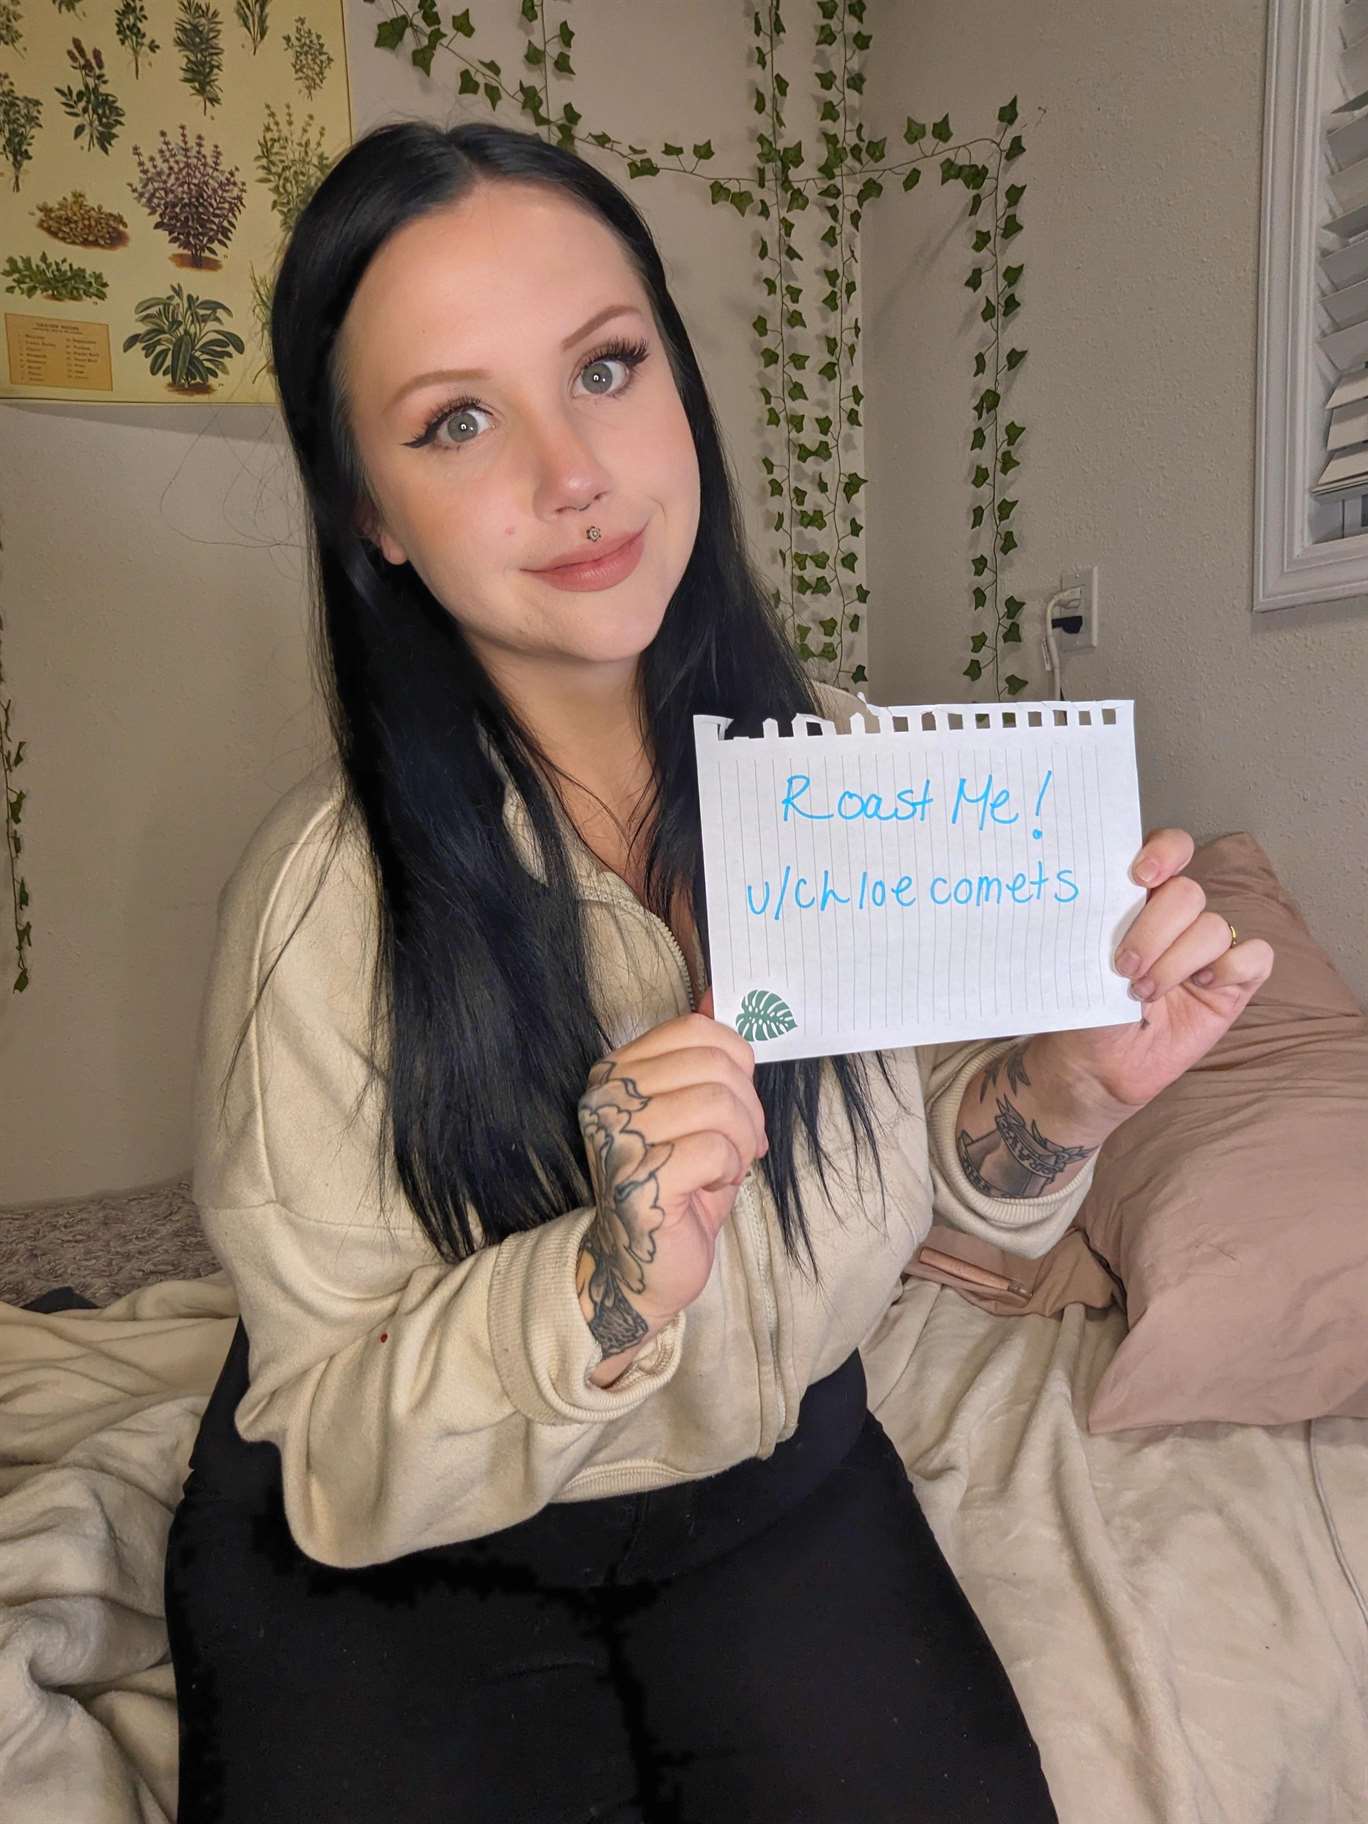 Roast Me!
u/chloecomets